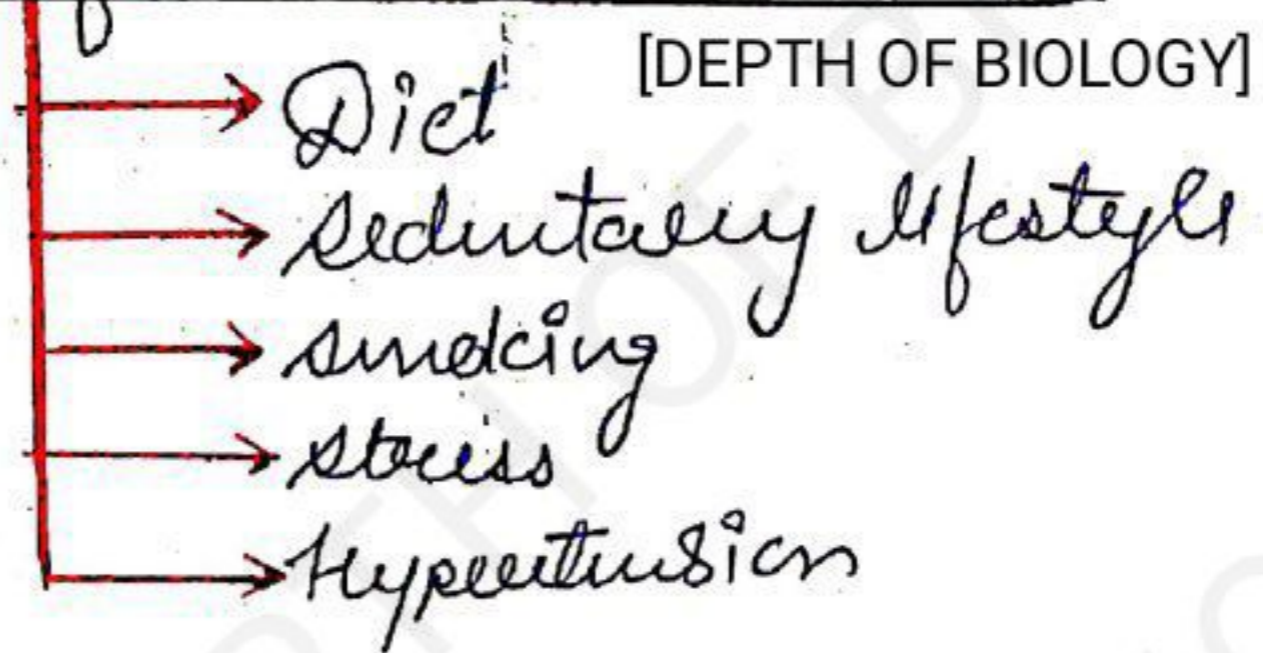 [DEPTH OF BIOLOGY]
Diet
sedentary lifestyle
smoking
stress
Hypertension